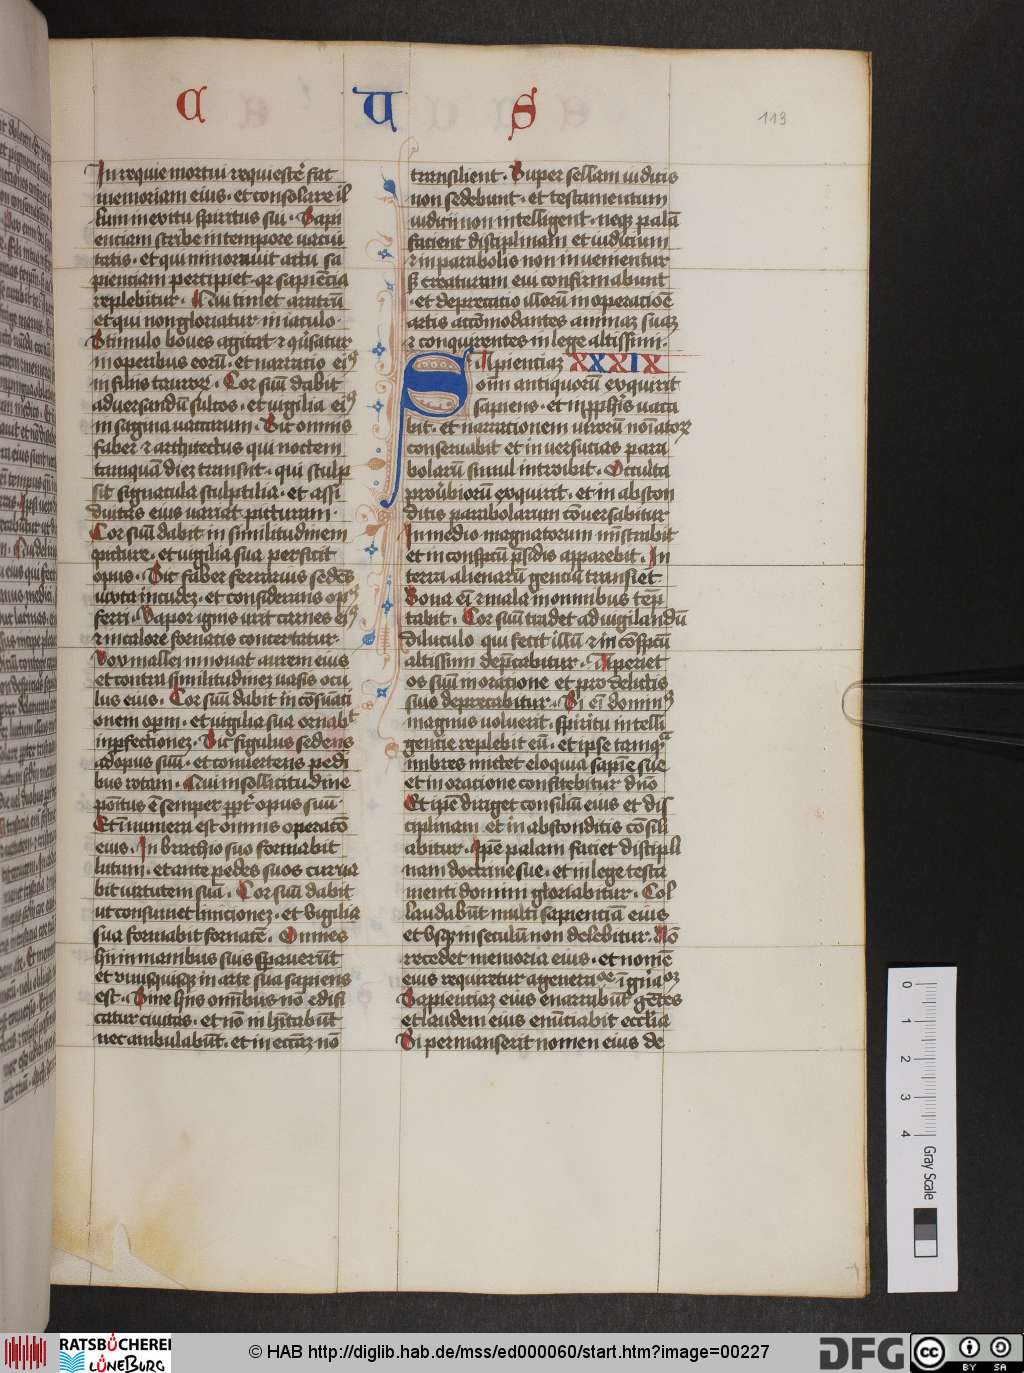 C U S
113
In requie mortui requiescē fac
memoriam eius · et consolare il
lum in exitu spiritus sui · Sapi
entiam scribe in tempore vacui
tatis · et qui minoravit actu sa
pientiam percipiet · qr sapiēcia
replebitur · Qui tenet aratrū
et qui non gloriatur in iaculo ·
Stimulo boves agitat ⁊ qūsatur
in operibus eorū · et narratio eiꝰ
in filiis tauroꝝ · Cor suū dabit
ad versandū sulcos · et vigilia eiꝰ
in sagina vaccarum · Sic omnis
faber ⁊ architectus qui noctem
tamquā diez transiit · qui sculp
sit signacula sculptilia · et assi
duitas eius variat picturam ·
Cor suū dabit in similitudinem
picture · et vigilia sua perficit
opus · Sic faber ferrarius sedēs
iuxta incudez · et considerans opꝰ
ferri · Vapor ignis urit carnes eiꝰ
⁊ in calore fornacis concertatur ·
Vox mallei innovat aurem eius
et contra similitudinez vasis ocu
lus eius · Cor suū dabit in cōsūati
onem opm̄ · et vigilia sua ornabᵗ
inꝑfectionez · Sic figulus sedens
ad opus suū · et convertens pedi
bus rotam · Qui in sollicitudine
positus ē semper ꝓpt̄ opus suū ·
Et ī numera est omnis operatō
eius · In brachio suo formabit
lutum · et ante pedes suos curva
bit virtutem suā · Cor suū dabit
ut consumet linicionez · et vigilia
sua formabit fornacē · Omnes
hii in manibus suis sperauerūt
et vnusquisque in arte sua sapiens
est · Sine hiis omībus nō edifi
catur civitas · et nō inhītabūt
nec ambulabūt · et in ecc̄az nō
transilient · Super sellam iudicis
non sedebunt · et testamentum
iudicii non intelligent · neqꝫ palā
facient disciplinam et iudicium
⁊ in parabolis non invenientur
sꝫ creaturam evi confirmabunt
· et deprecatio illorū in operatiōe
artis accōmodantes animaꝫ suaꝫ
⁊ conquirentes in lege altissimi ·
Sapientiaz XXXIX
omī antiquorū exquirit
sapiens · et in ꝓphīs vaca
bit · et narrationem virorū noīatoꝝ
conservabit et in versucias para
bolarū simul introibit · Occulta
proūbiorū exquirit · et in abscon
ditis parabolarum cōversabitur
In medio magnatorum mistrabit
et in conspcū p̄sidis apparebit · In
terrā alienarū genciū transiet
Bona eī ⁊ mala in omnibus tēp
tabit · Cor suū tradet ad vigilandū
diluculo qui fecit illū ⁊ in cōspcū
altissimi dep̄cabitur · Aperiet
os suū in oratione et pro delictis
suis deprecabitur · Si eī dominꝰ
magnus voluerit · spiritu intelli
gencie replebit eū · et ipse tamqᵃ
imbres mittet eloquia sapīe sue
et in oracione confitebitur dn̄o
Et ip̄e diriget consiliū eius et dis
ciplinam et in absconditis cōsili
abitur · Ip̄e palam faciet discipli
nam doctrine sue · et in lege testa
menti domini gloriabitur · Col
laudabūt multi sapienciā eius
et vsqꝫ in seculū non delebitur · Nō
recedet memoria eius · et nomē
eius requiretur a generaᵒᵉ ī gnāᵒꝫ
Sapienciaz eius enarrabūt gētes
et laudem eius enūciabit ecclīa
Si permanserit nomen eius de
0 1 2 3 4
Gray Scale
RATSBÜCHEREI
LÜNEBURG
© HAB http://diglib.hab.de/mss/ed000060/start.htm?image=00227
DFG
cc BY SA